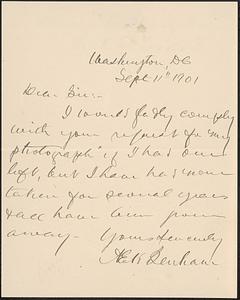 Washington, DC
Sept 11th 1901
Dear Sir:-
I would gladly comply
with your request for "my
photograph" if I had one
left, but I have had none
taken for several years
& all have been given
away - Yours sincerely
A E K Benham